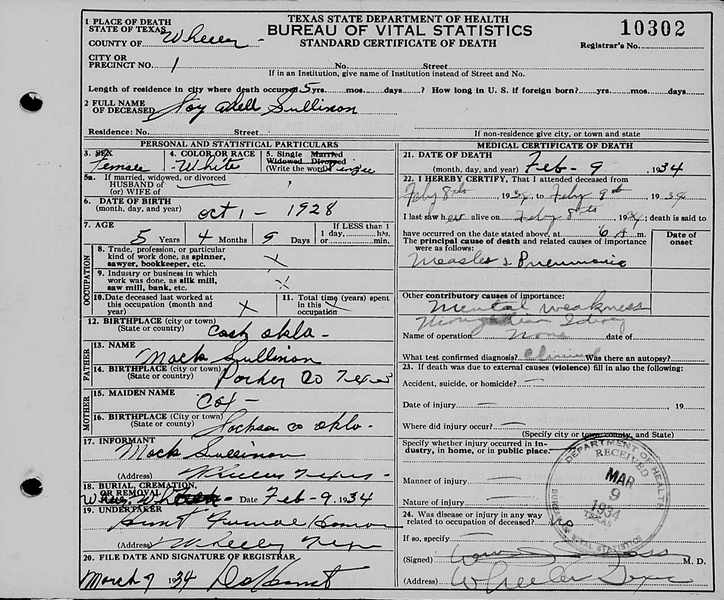 TEXAS STATE DEPARTMENT OF HEALTH
BUREAU OF VITAL STATISTICS
STANDARD CERTIFICATE OF DEATH
10302
Registrar's No.
1 PLACE OF DEATH
STATE OF TEXAS
COUNTY OF Wheeler
CITY OR PRECINCT NO. 1 No. Street
If in an Institution, give name of Institution instead of Street and No.
Length of residence in city where death occurred 5 yrs. mos. days? How long in U. S. if foreign born? yrs. mos. days?
2 FULL NAME OF DECEASED Sullinson
Residence: No. Street If non-residence give city, or town and state
PERSONAL AND STATISTICAL PARTICULARS
3. SEX Female
4. COLOR OR RACE White
5. Single Married Widowed Divorced (Write the word) Single
5a. If married, widowed, or divorced
HUSBAND OF
(or) WIFE OF
6. DATE OF BIRTH
(month, day, and year) Oct 1 - 1928
7. AGE 5 Years 4 Months 9 Days If LESS than 1 day, hrs. or min.
OCCUPATION
8. Trade, profession, or particular kind of work done, as spinner, sawyer, bookkeeper, etc. X
9. Industry or business in which work was done, as silk mill, saw mill, bank, etc. X
10. Date deceased last worked at this occupation (month and year) X
11. Total time (years) spent in this occupation X
12. BIRTHPLACE (city or town)
(State or country) Okla -
FATHER
13. NAME Mack Sullinson
14. BIRTHPLACE (City or town)
(State or country) Parker Co Texas
MOTHER
15. MAIDEN NAME Cox -
16. BIRTHPLACE (City or town)
(State or country) Jackson Co Okla.
17. INFORMANT Mack Sullinson
(Address) Wheeler Texas
18. BURIAL, CREMATION, OR REMOVAL
Date Feb - 9, 1934
19. UNDERTAKER Hunt
(Address) Wheeler Texas
20. FILE DATE AND SIGNATURE OF REGISTRAR
March 9 1934
MEDICAL CERTIFICATE OF DEATH
21. DATE OF DEATH
(month, day, and year) Feb - 9, 1934
22. I HEREBY CERTIFY, That I attended deceased from
Feby 8th 1934 to Feby 9th 1934
I last saw her alive on Feby 8th 1934; death is said to
have occurred on the date stated above, at 6 A m.
The principal cause of death and related causes of importance were as follows:
Date of onset
Measles & Pneumonia
Other contributory causes of importance:
Mental weakness
Mongolian Idiocy
Name of operation None date of
What test confirmed diagnosis? Clinical Was there an autopsy?
23. If death was due to external causes (violence) fill in also the following:
Accident, suicide, or homicide?
Date of injury 19
Where did injury occur?
(Specify city or town, county, and State)
Specify whether injury occurred in industry, in home, or in public place.
Manner of injury
Nature of injury
24. Was disease or injury in any way related to occupation of deceased? no
If so, specify
(Signed) M. D.
(Address) Wheeler Texas
DEPARTMENT OF HEALTH
RECEIVED
MAR
9
1934
TEXAS
BUREAU OF VITAL STATISTICS